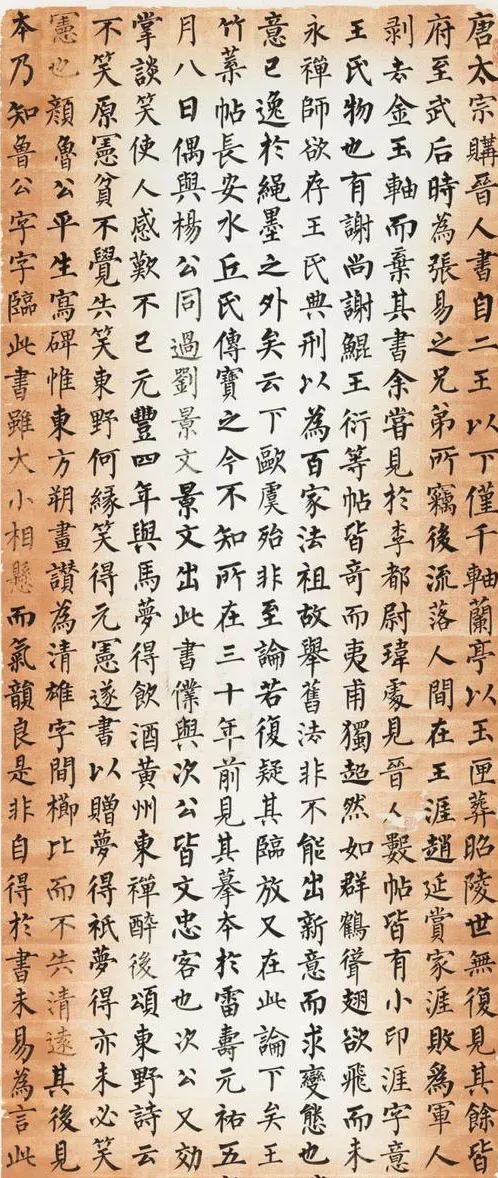 唐太宗購晉人書自二王以下僅千軸蘭亭以玉匣葬昭陵世無復見其餘皆
府至武后時為張易之兄弟所竊後流落人間在王涯趙延賞家涯敗為軍人
剥去金玉軸而棄其書余嘗見於李都尉瑋處見晉人數帖皆有小印涯字意
王氏物也有謝尚謝鯤王衍等帖皆奇而夷甫獨超然如群鶴聳翅欲飛而未
永禪師欲存王氏典刑以為百家法祖故舉舊法非不能出新意而求變態也
意已逸於繩墨之外矣云下歐虞殆非至論若復疑其臨放又在此論下矣王
竹葉帖長安水丘氏傳寶之今不知所在三十年前見其摹本於雷壽元祐五
月八日偶與楊公同過劉景文景文出此書僕與次公皆文忠客也次公又効
掌談笑使人感歎不已元豐四年與馬夢得飲酒黃州東禪醉後頌東野詩云
不笑原憲貧不覺失笑東野何緣笑得元憲遂書以贈夢得衹夢得亦未必笑
憲也顏魯公平生寫碑惟東方朔畫讃為清雄字間櫛比而不失清遠其後見
本乃知魯公字字臨此書雖大小相懸而氣韻良是非自得於書未易為言此